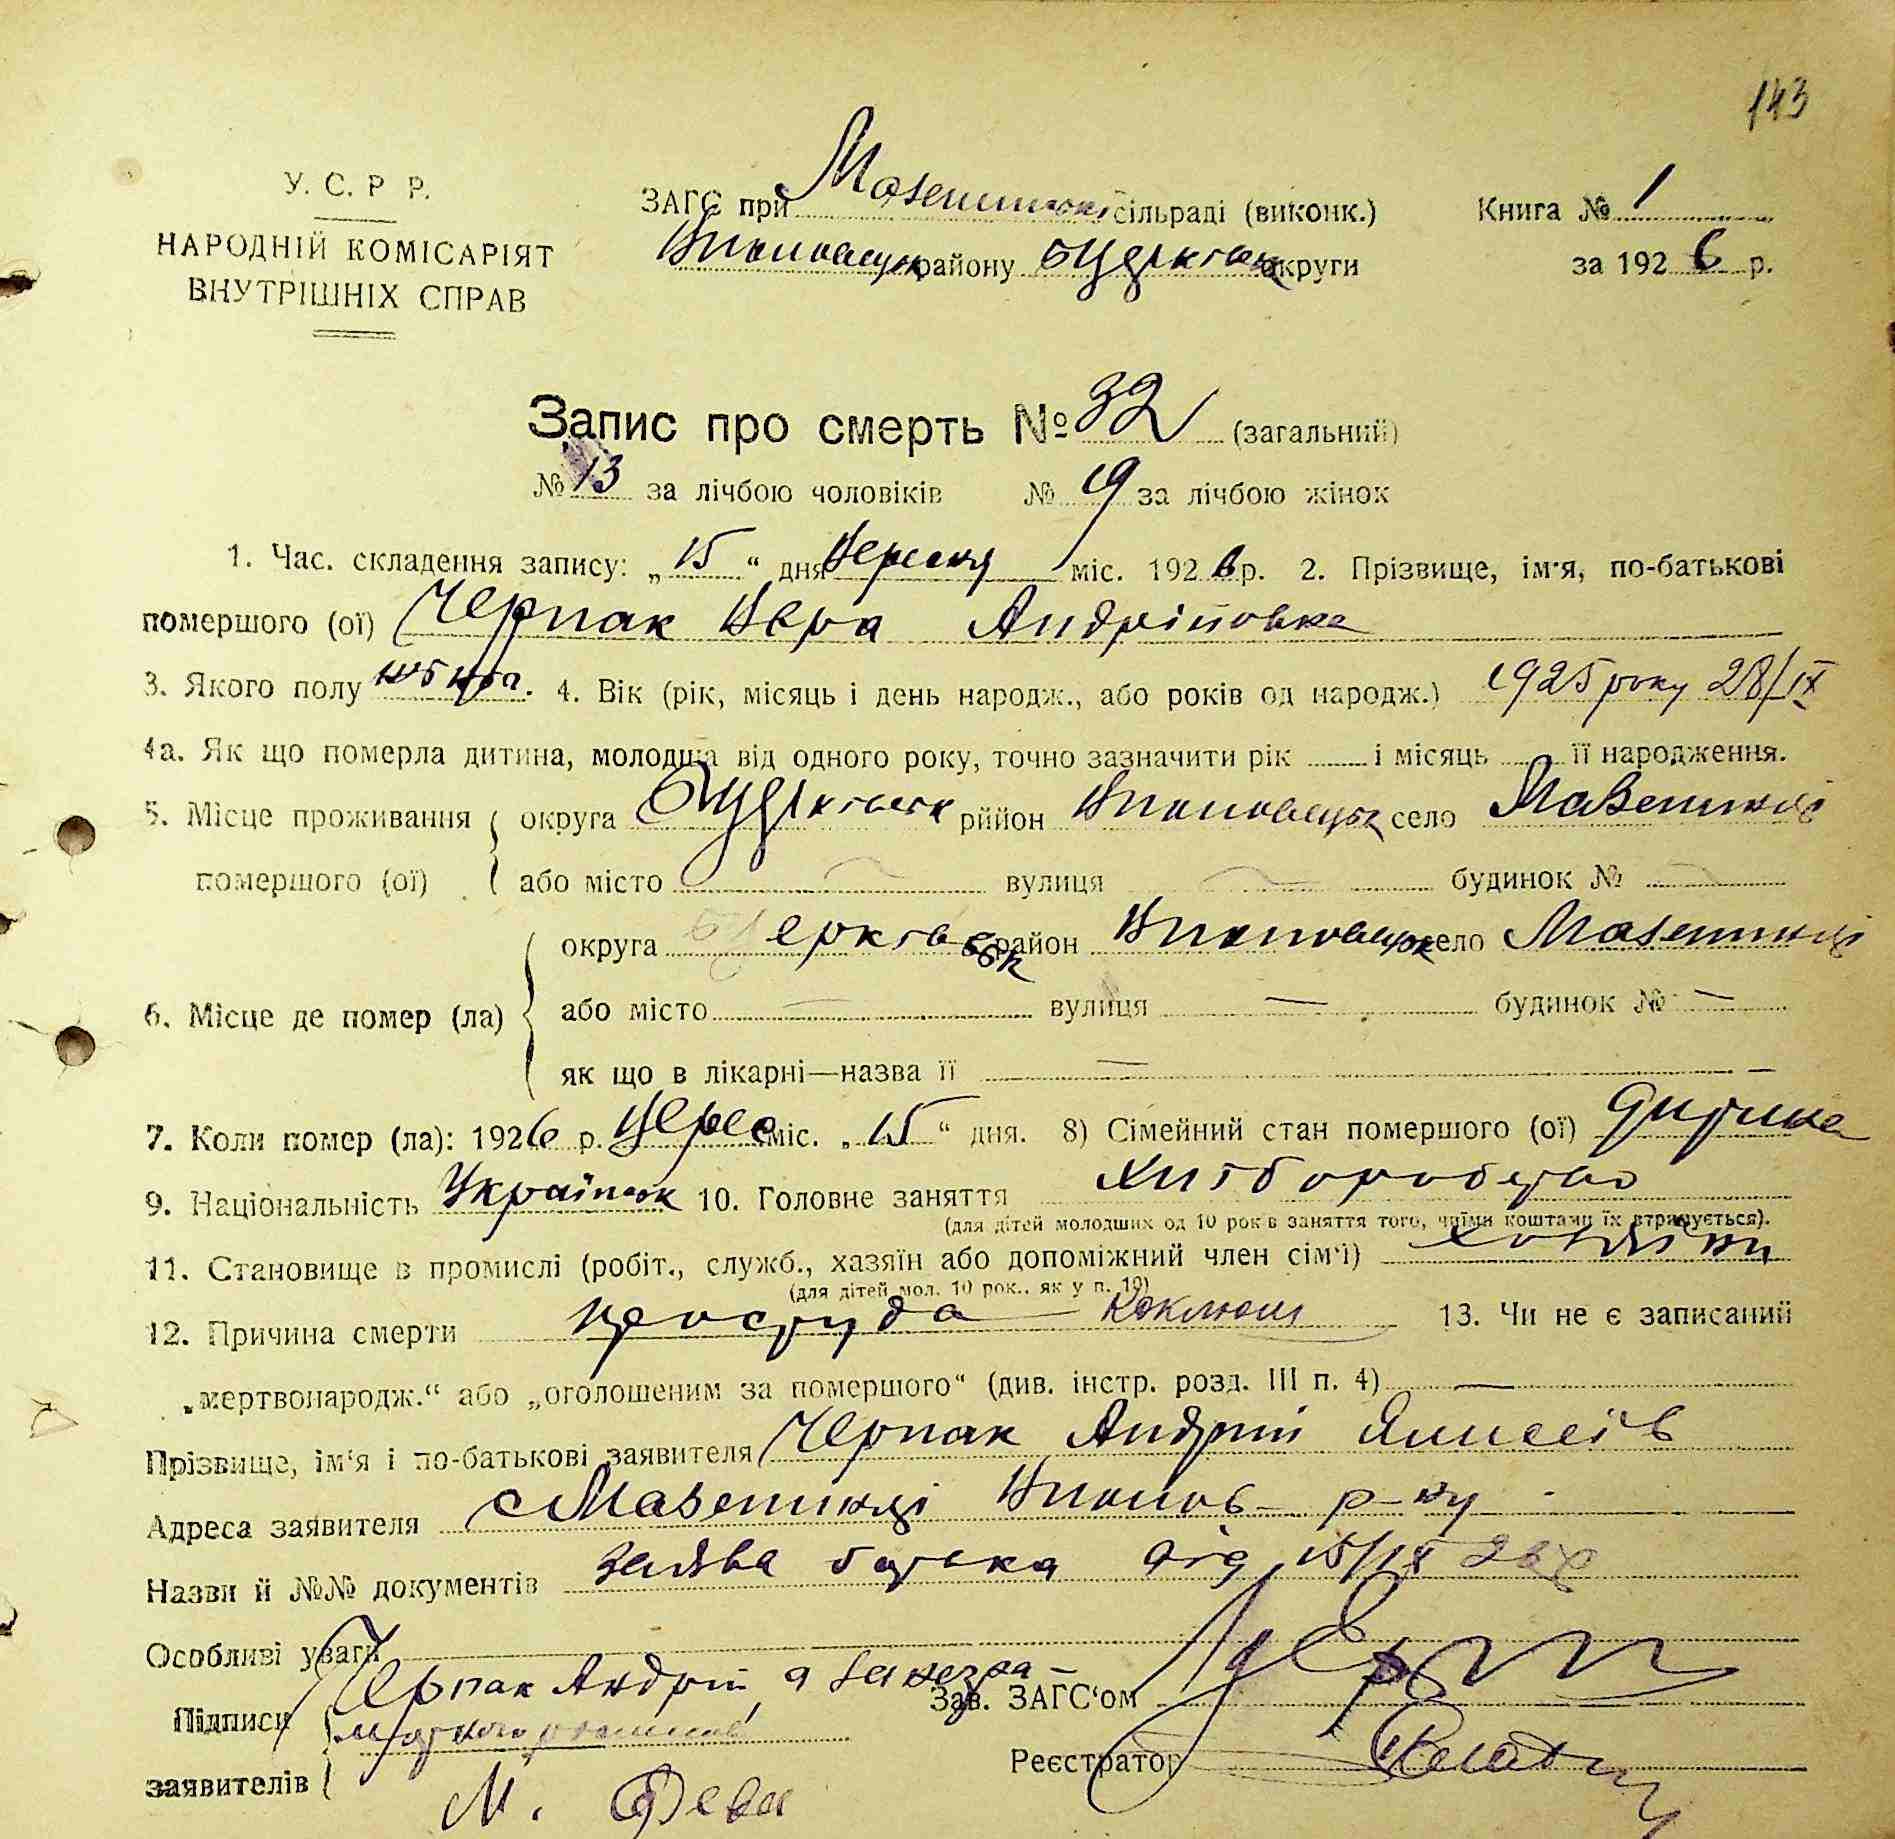 143
У. С. Р Р.
НАРОДНІЙ КОМІСАРІЯТ
ВНУТРІШНІХ СПРАВ
ЗАГС при Мазепинській сільраді (виконк.)
району округи
Книга № 1
за 1926 р.
Запис про смерть № 32 (загальний)
№ 13 за лічбою чоловіків № 19 за лічбою жінок
1. Час. складення запису: „15“ дня Вересня міс. 1926 р. 2. Прізвище, ім'я, по-батькові
помершого (ої) Черпак Вера Андріповна
3. Якого полу 4. Вік (рік, місяць і день народж., або років од народж.) 1925 року 28/IX
4а. Як що померла дитина, молодша від одного року, точно зазначити рік і місяць її народження.
5. Місце проживання округа рийон село Мазепинці
помершого (ої) або місто — вулиця — будинок № —
округа район село Мазепинці
6. Місце де помер (ла) або місто — вулиця — будинок № —
як що в лікарні—назва її —
7. Коли помер (ла): 1926 р. Верес міс. „15“ дня. 8) Сімейний стан помершого (ої) дитина
9. Національність Українск 10. Головне заняття Хліборобство
(для дітей молодших од 10 рок в заняття того, чиїми коштами їх втрачується).
11. Становище в промислі (робіт., служб., хазяїн або допоміжний член сім'ї)
(для дітей мол. 10 рок.. як у п. 10)
12. Причина смерти простуда коклюш 13. Чи не є записаний
„мертвонародж.“ або „оголошеним за помершого“ (див. інстр. розд. III п. 4) —
Прізвище, ім'я і по-батькові заявителя Черпак Андрій
Адреса заявителя с Мазепинці р-ну
Назви й №№ документів заява батька від 15/IX 26 р
Особливі уваги
Підписи Черпак Андрій а за
Зав. ЗАГС'ом
заявителів М.
Реєстратор